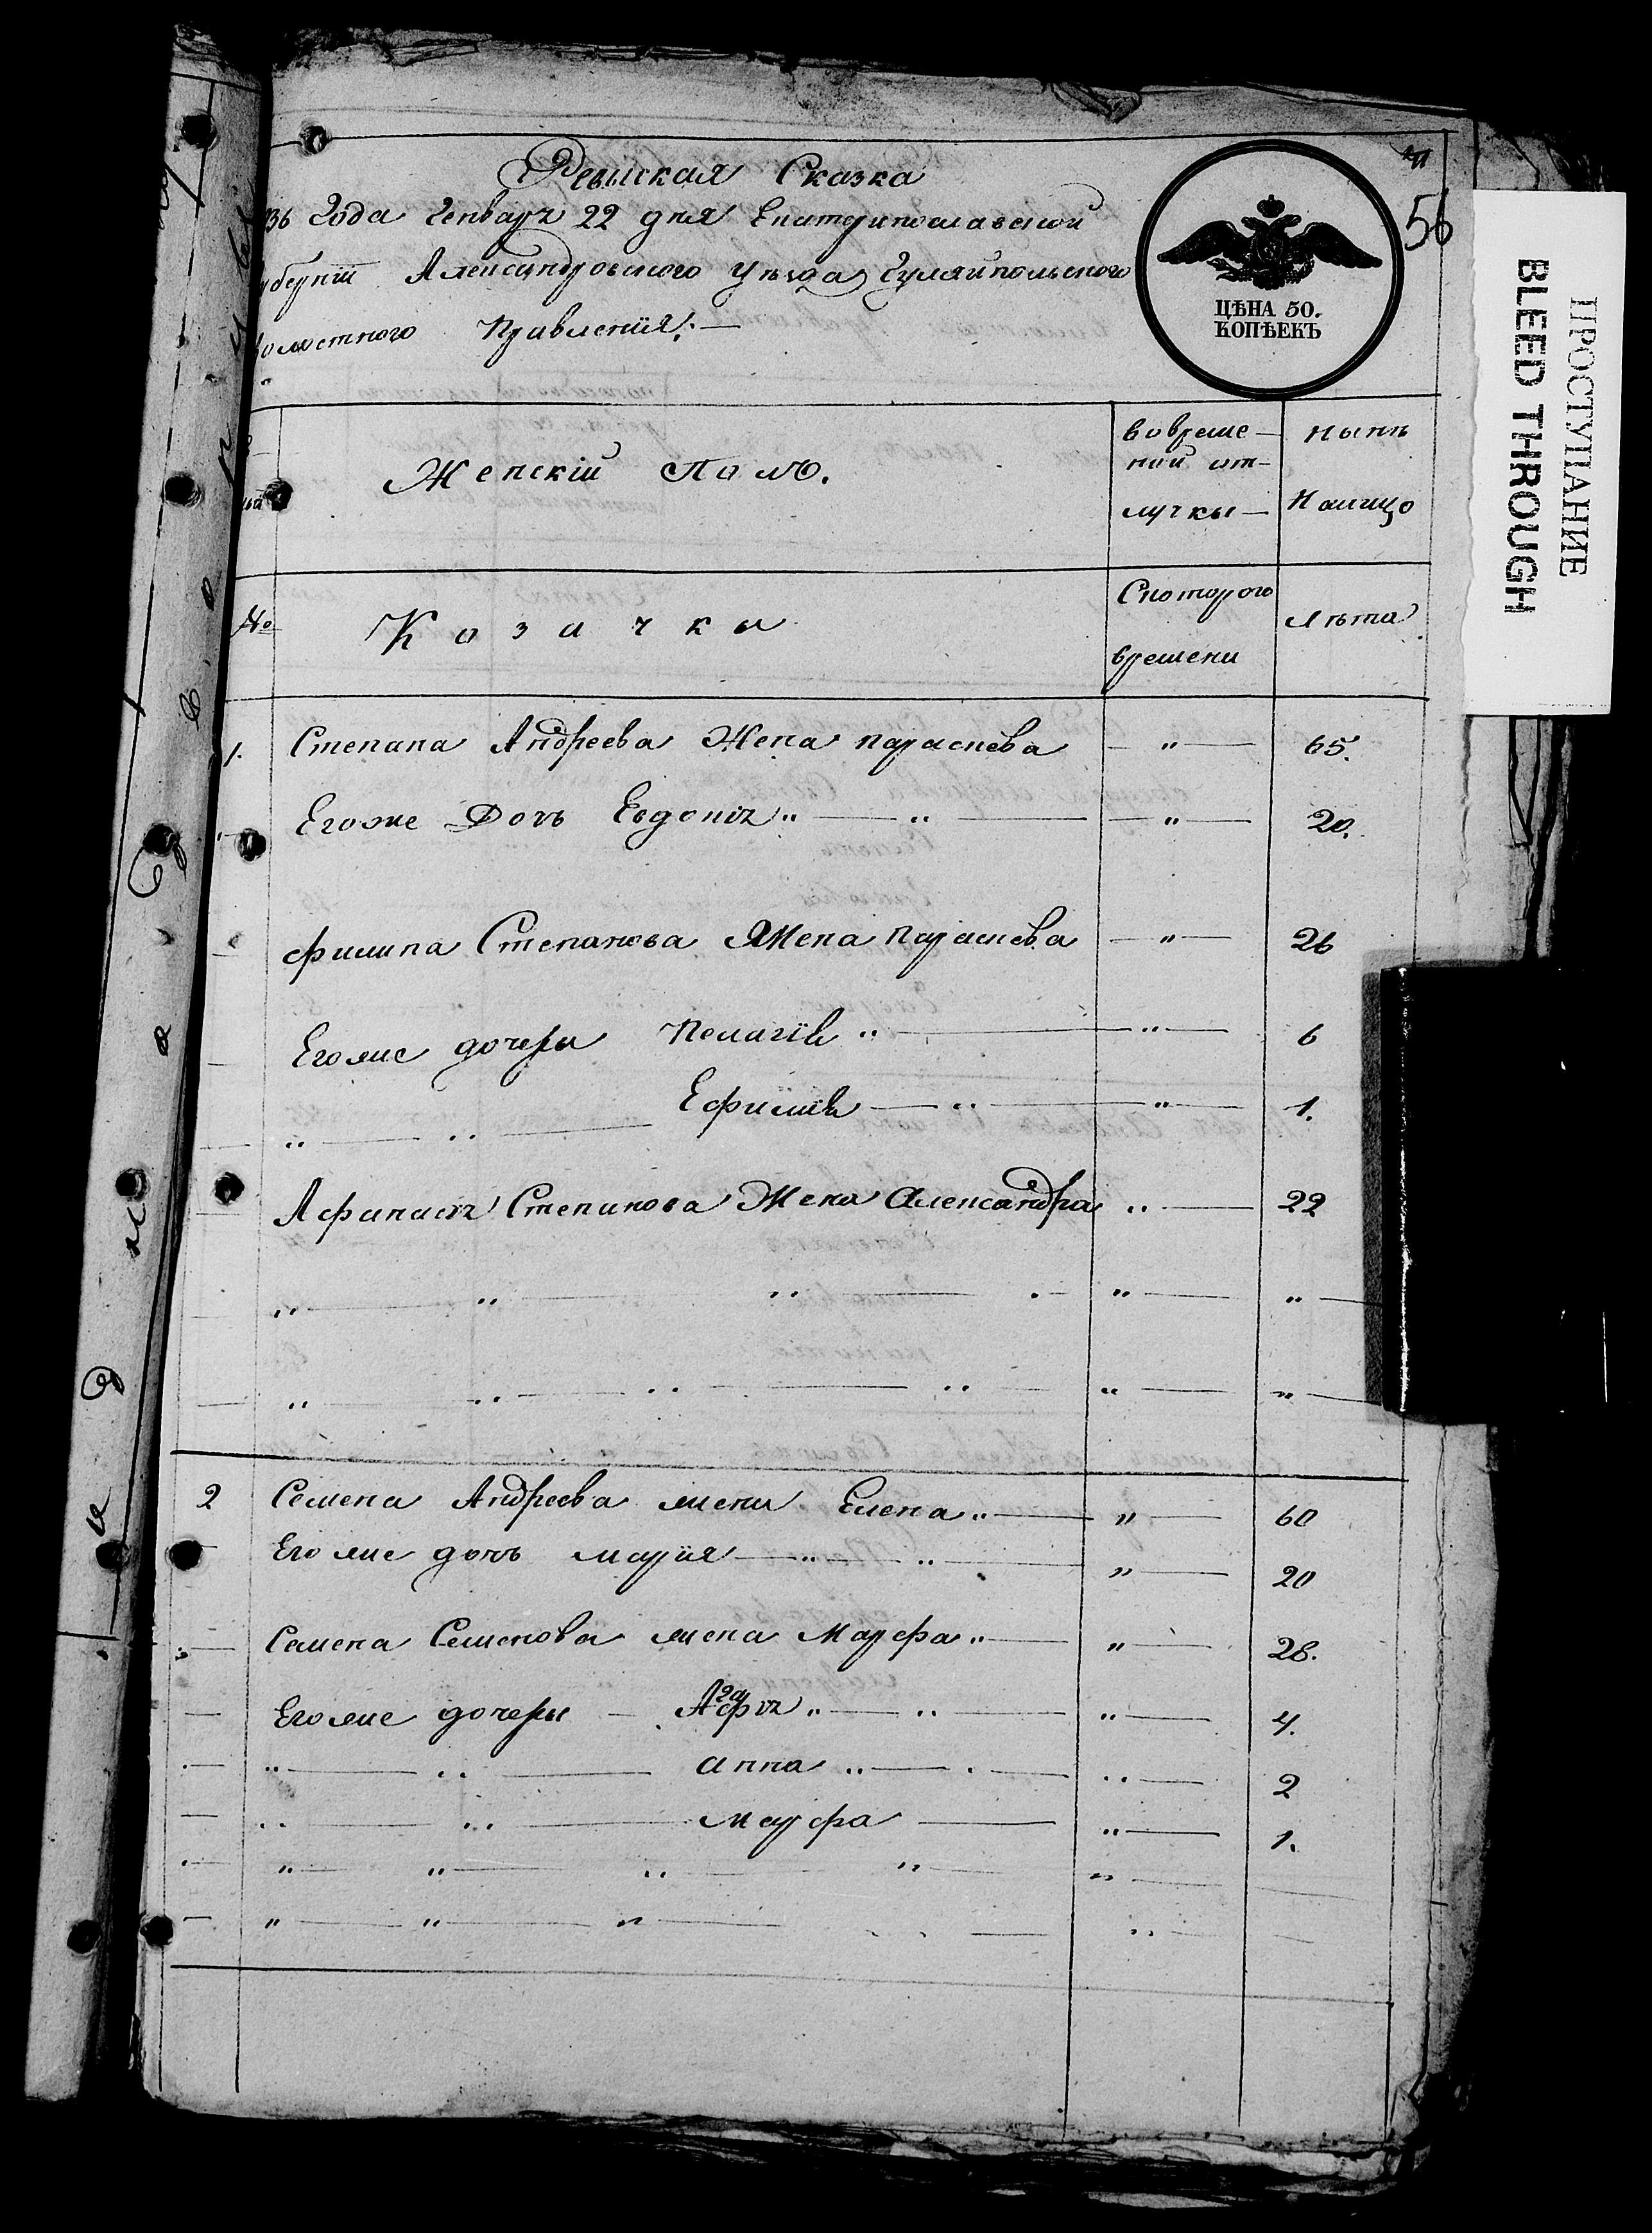 Ревизская Сказка
56
36 Года Генваря 22 дня Екатеринославской
уберніи Александровского Уѣзда Гуляйпольского
волостного Правленія:—
ЦѢНА 50.
КОПѢЕКЪ
ПРОСТУПАНИЕ
BLEED THROUGH
Женскій Полъ.
Во време-
ной от-
лучкы
Нынѣ
Налицо
№
Козачкы
Скоторого
времени
Лѣта
1. Степана Андреева Жена параскева — " — 65.
Егоже Дочь Евдокія " — " — " — 20.
Филипа Степанова Жена Параскева — " — 26
Егоже дочеры Пелагія " — " — 6
" — " — Ефимія — " — " — 1.
Афанасія Степанова Жена Александра " — 22
" — " — " — " — " —
" — " — " — " — " — " —
2 Семена Андреева жена Елена " — " — 60
Егоже дочь марія — " — " — " — 20
Семена Семенова жена Марфа " — " — 28.
Егоже дочеры — Агафія " — " — " — 4.
" — " — анна " — " — 2
" — " — Марфа — " — 1.
" — " — " — " — " —
" — " — " — " —